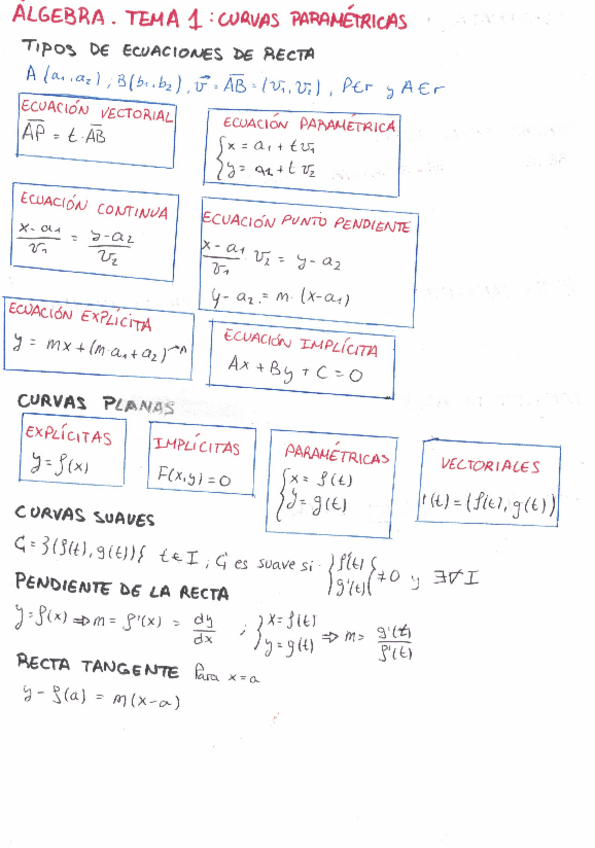 ÁLGEBRA. TEMA 1: CURVAS PARAMÉTRICAS
TIPOS DE ECUACIONES DE RECTA
A (a₁,a₂), B(b₁,b₂), v⃗ = AB = (v₁,v₂), P∈r y A∈r
ECUACIÓN VECTORIAL
AP = t·AB
ECUACIÓN PARAMÉTRICA
x = a₁ + t v₁
y = a₂ + t v₂
ECUACIÓN CONTINUA
x-a₁/v₁ = y-a₂/v₂
ECUACIÓN PUNTO PENDIENTE
x-a₁/v₁ · v₂ = y-a₂
y-a₂ = m·(x-a₁)
ECUACIÓN EXPLÍCITA
y = mx+(m·a₁+a₂)
ECUACIÓN IMPLÍCITA
Ax + By + C = 0
CURVAS PLANAS
EXPLÍCITAS
y = f(x)
IMPLÍCITAS
F(x,y) = 0
PARAMÉTRICAS
x = f(t)
y = g(t)
VECTORIALES
r(t) = (f(t), g(t))
CURVAS SUAVES
G = {(f(t), g(t))} t∈I ; G es suave si {f'(t) g'(t)} ≠0 y ∃∀ I
PENDIENTE DE LA RECTA
y = f(x) ⇒ m = f'(x) = dy/dx ; {x = f(t) y = g(t) ⇒ m = g'(t)/f'(t)
RECTA TANGENTE Para x=a
y - f(a) = m(x-a)